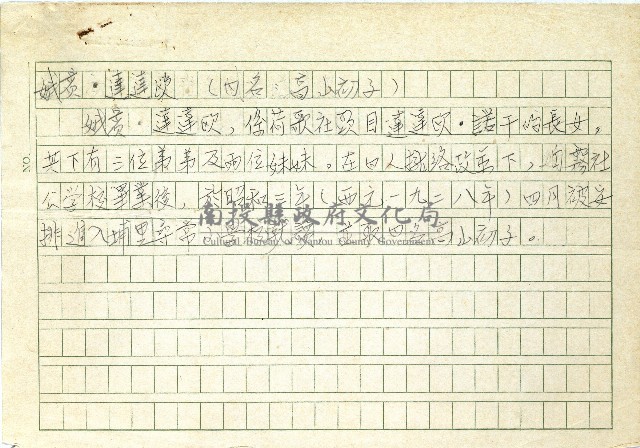 娥賓·達達歐（日名：高山初子）
娥賓·達達歐，係荷歌社頭目達達歐·諾干的長女，
其下有三位弟弟及兩位妹妹。在日人 政策下，
公学校畢業後，於昭和三年（西元一九二八年）四月被安
排進入埔里尋常小學校就讀，並取日名高山初子。
NO.
南投縣政府文化局
Cultural Bureau of Nantou County Government